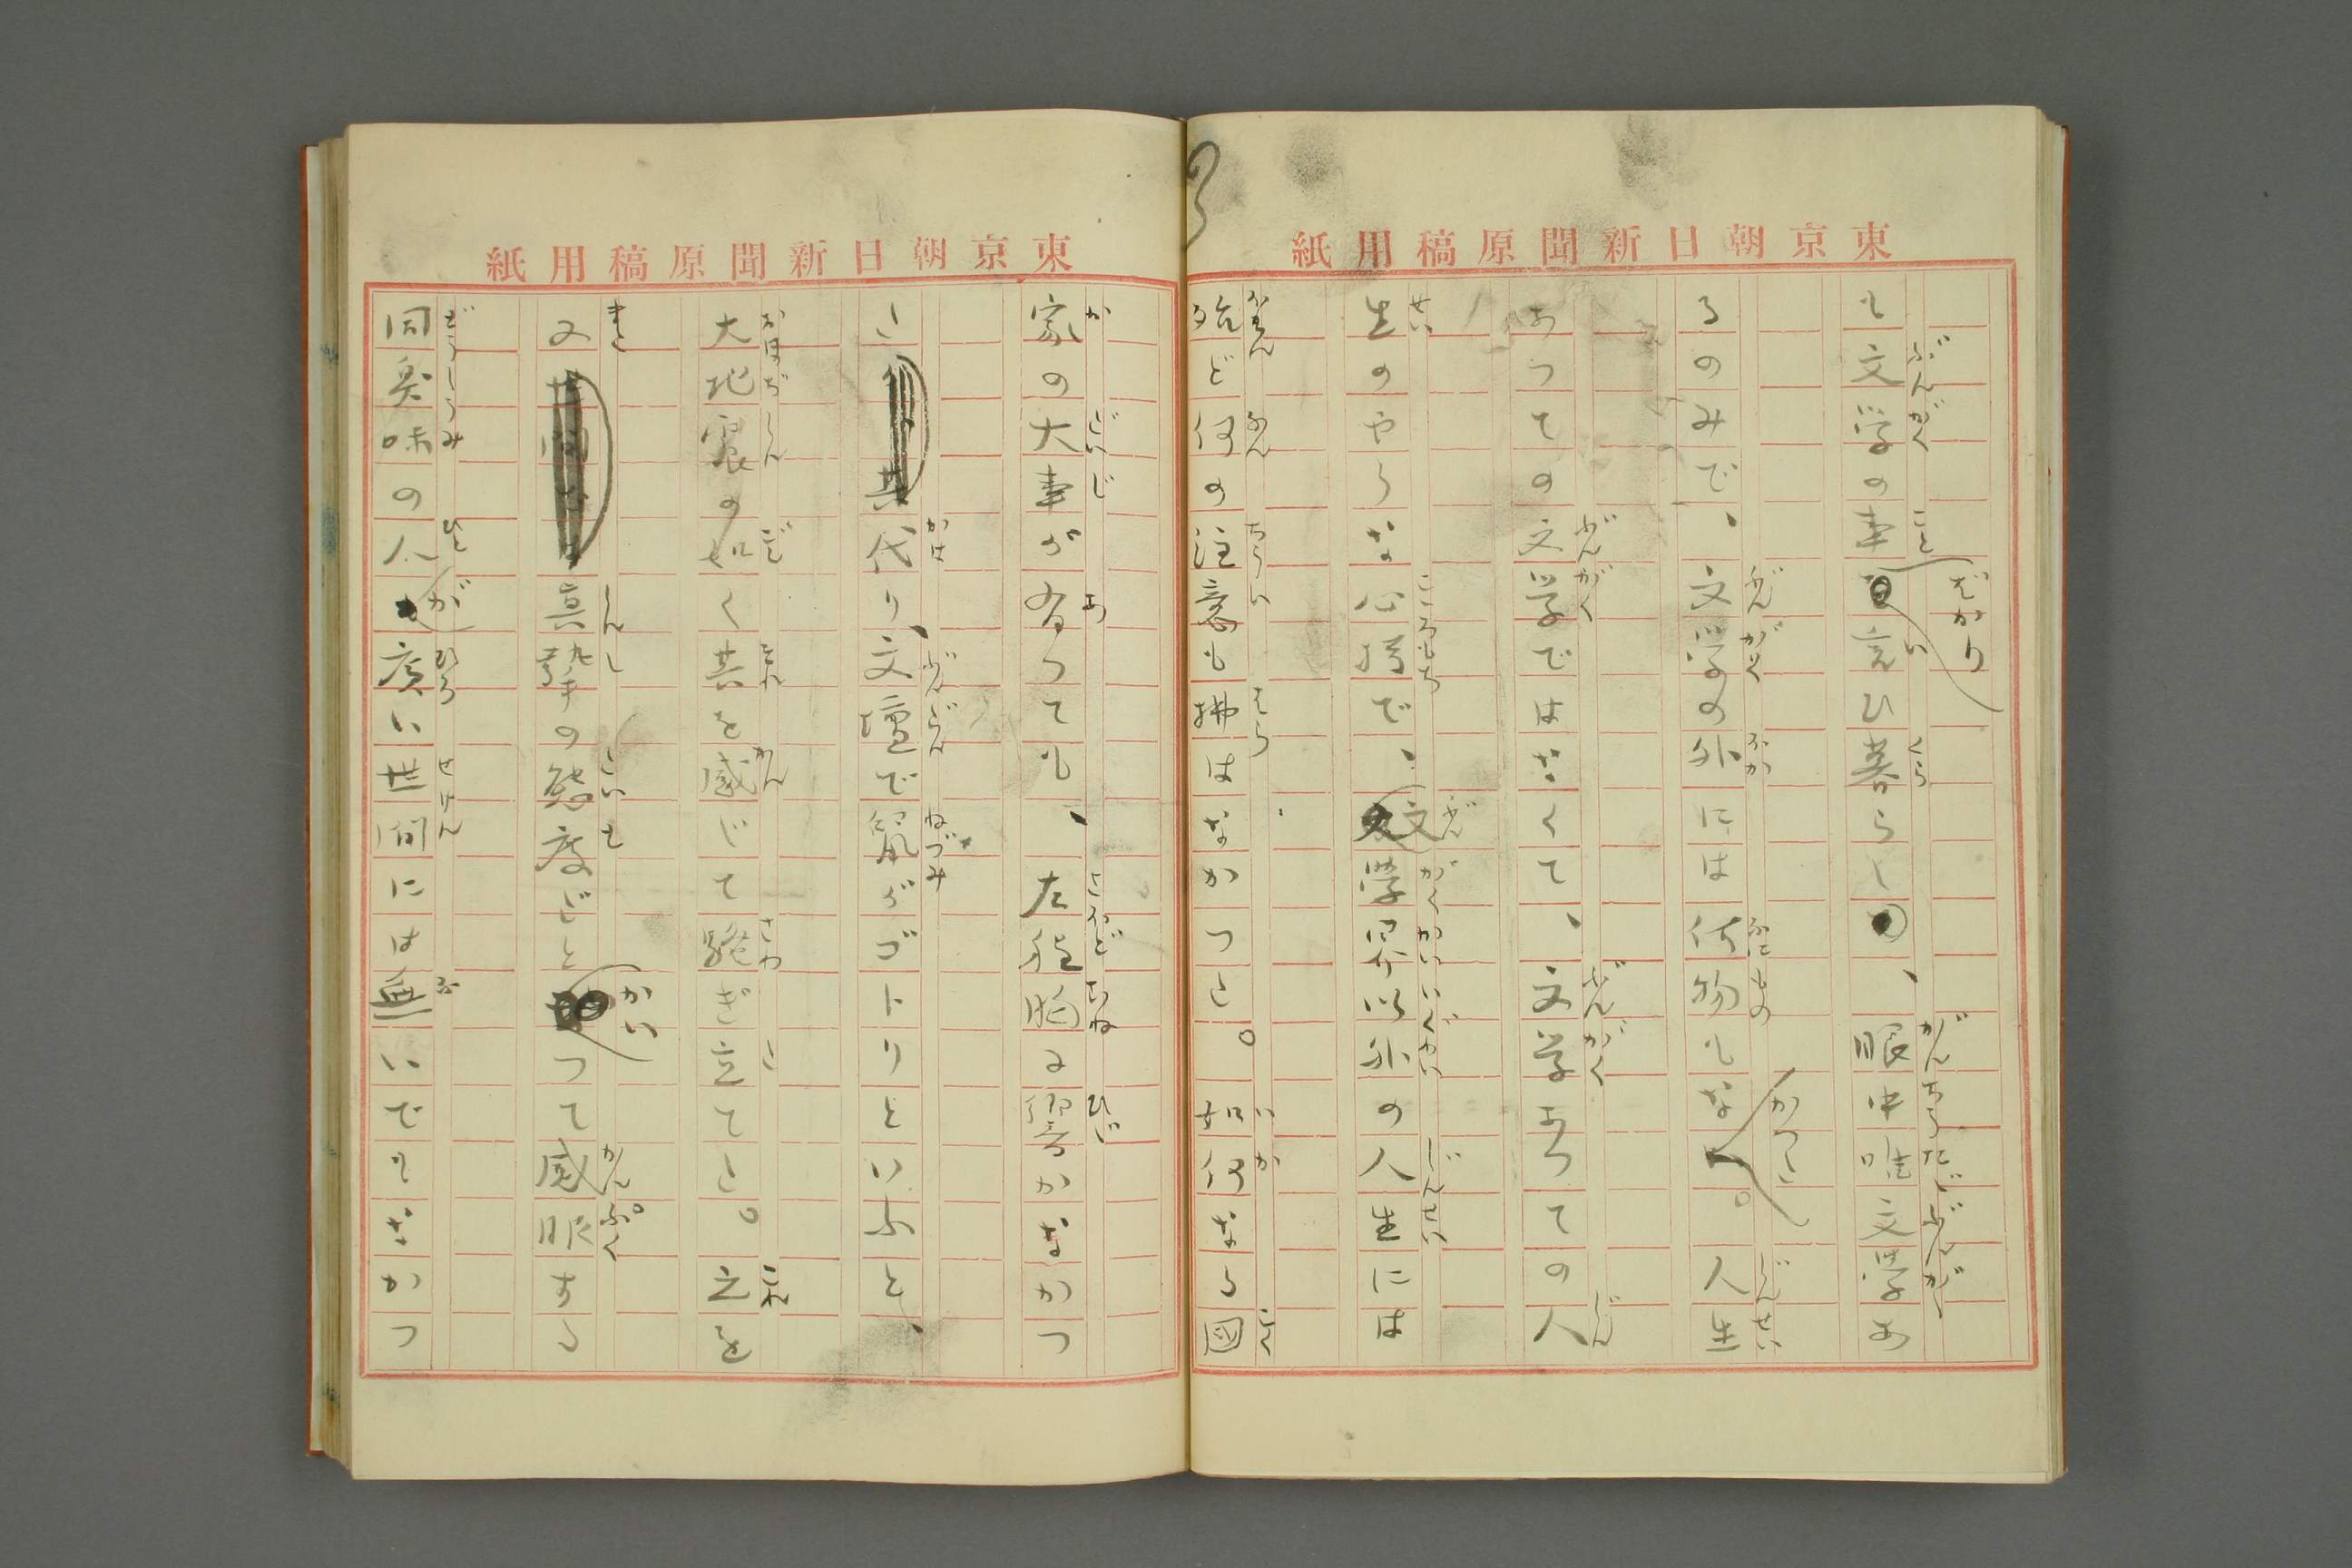 東京朝日新聞原稿用紙
も文学の事ばかり言ひ暮らし、眼中唯文学あ
るのみで、文学の外には何物もなかつた。人生
あつての文学ではなくて、文学あつての人
生のやうな心持で、文学界以外の人生には
殆ど何の注意も拂はなかつた。如何なる国
東京朝日新聞原稿用紙
家の大事が有つても、左程胸に響かなかつ
た代り、文壇で鼠がゴトリといふと、
大地震の如く其を感じて騒ぎ立てた。之を
又真摯の態度だとかいつて感服する
同臭味の人が広い世間には無いでもなかつ